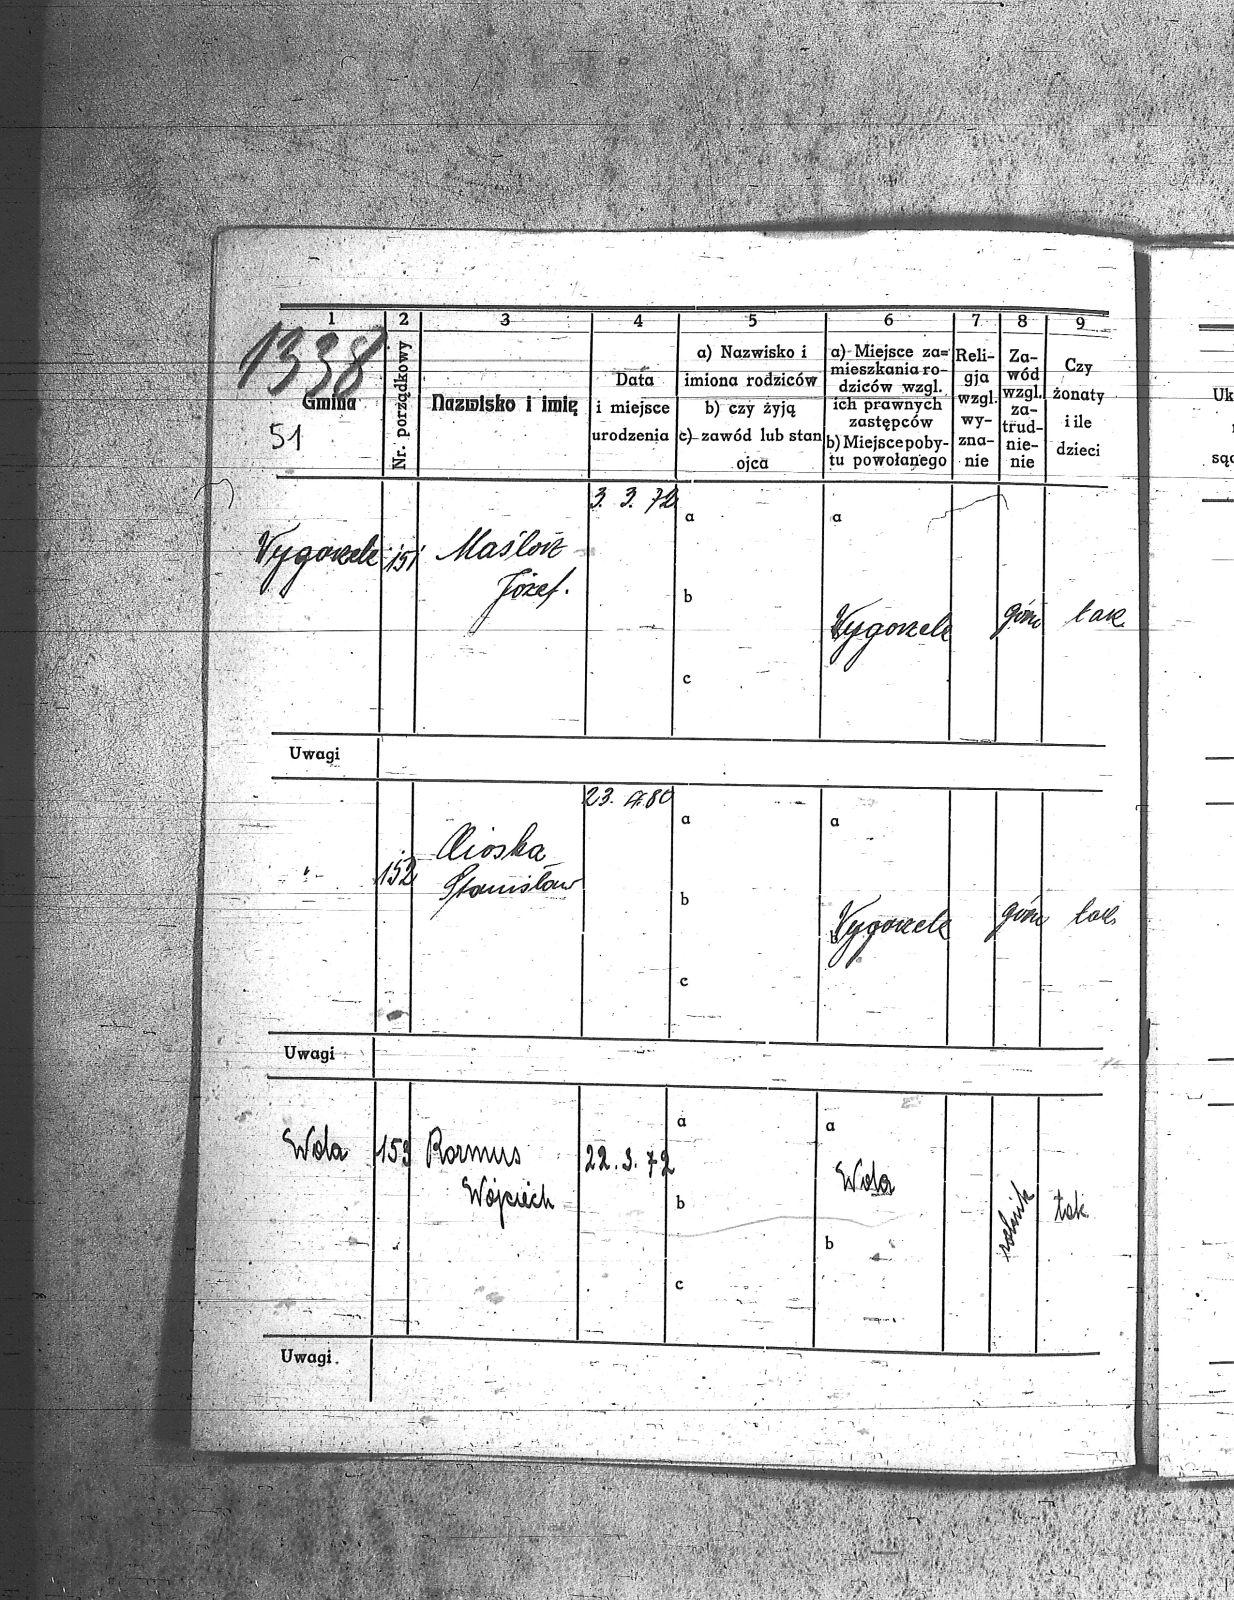 1 2 3 4 5 6 7 8 9
1338
Gmina
51
Nr. porządkowy
Nazwisko i imię
Data
i miejsce
urodzenia
a) Nazwisko i
imiona rodziców
b) czy żyją
c) zawód lub stan
ojca
a) Miejsce za=
mieszkania ro-
dziców wzgl.
ich prawnych
zastępców
b) Miejsce poby-
tu powołanego
Reli-
gja
wzgl.
wy-
zna-
nie
Za-
wód
wzgl.
za-
trud-
nie-
nie
Czy
żonaty
i ile
dzieci
3. 3. 72
a a
Wygorzele 151
Józef.
b
Wygorzele górn tak
c
Uwagi
23. 4. 80
a a
Stanisław
" 152
b
b Wygorzele górn tak
c
Uwagi
a a
Wola 153 Rozmus 22. 3. 72
Wojciech
Wola
b
rolnik tak
b
c
Uwagi.
Uk